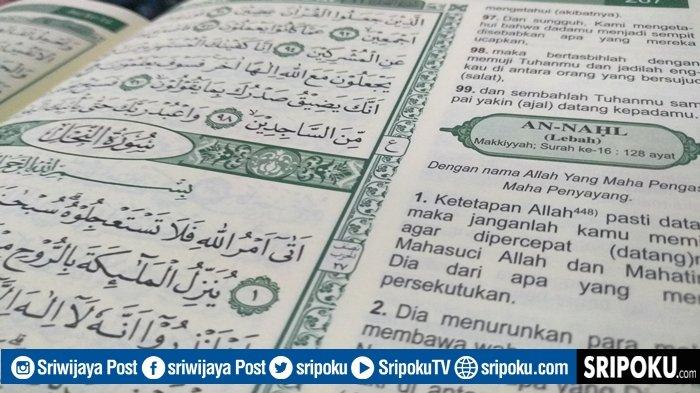 الَّذِيْنَ جَعَلُوا الْقُرْاٰنَ
اَجْمَعِيْنَ ٩٢ عَمَّا كَانُوْا
عَنِ الْمُشْرِكِيْنَ ٩٤ اِنَّا كَفَيْنٰكَ
يَجْعَلُوْنَ مَعَ اللّٰهِ اِلٰهًا اٰخَرَ فَسَوْفَ
اَنَّكَ يَضِيْقُ صَدْرُكَ بِمَا يَقُوْلُوْنَ
مِّنَ السّٰجِدِيْنَ ٩٨ وَاعْبُدْ رَبَّكَ حَتّٰى
سُوْرَةُ النَّحْلِ
بِسْمِ اللّٰهِ
اَتٰٓى اَمْرُ اللّٰهِ فَلَا تَسْتَعْجِلُوْهُ
١ يُنَزِّلُ الْمَلٰۤىِٕكَةَ بِالرُّوْحِ
اَنَّهٗ لَآ اِلٰهَ
ع
267
mengetahui (akibatnya).
97. Dan sungguh, Kami mengeta-
hui bahwa dadamu menjadi sempit
disebabkan apa yang mereka
ucapkan,
98. maka bertasbihlah dengan
memuji Tuhanmu dan jadilah eng
kau di antara orang yang bersujud
(salat),
99. dan sembahlah Tuhanmu sam
pai yakin (ajal) datang kepadamu.
AN-NAHL
(Lebah)
Makkiyyah; Surah ke-16 : 128 ayat
Dengan nama Allah Yang Maha Pengas
Maha Penyayang.
1. Ketetapan Allah448) pasti data
maka janganlah kamu mem
agar dipercepat (datang)n
Mahasuci Allah dan Mahatin
Dia dari apa yang me
persekutukan.
2. Dia menurunkan para ma
membawa
di antara
Sriwijaya Post sriwijaya Post sripoku SripokuTV sripoku.com SRIPOKU.com